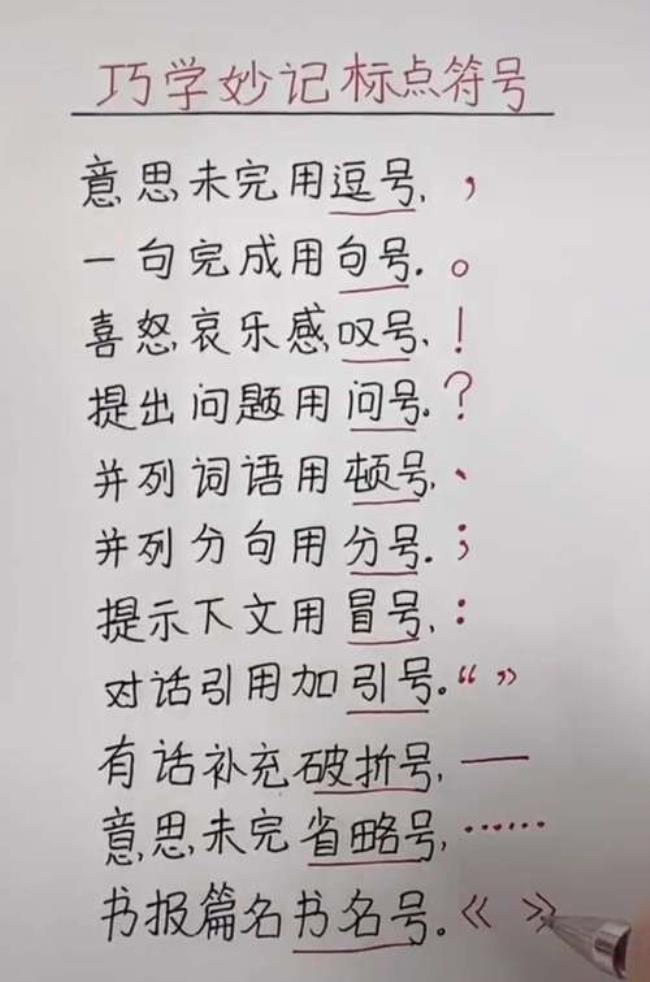 巧学妙记标点符号
意思未完用逗号，，
一句完成用句号。。
喜怒哀乐感叹号，！
提出问题用问号。？
并列词语用顿号，、
并列分句用分号。；
提示下文用冒号，：
对话引用加引号。“ ”
有话补充破折号，——
意思未完省略号，……
书报篇名书名号。《 》